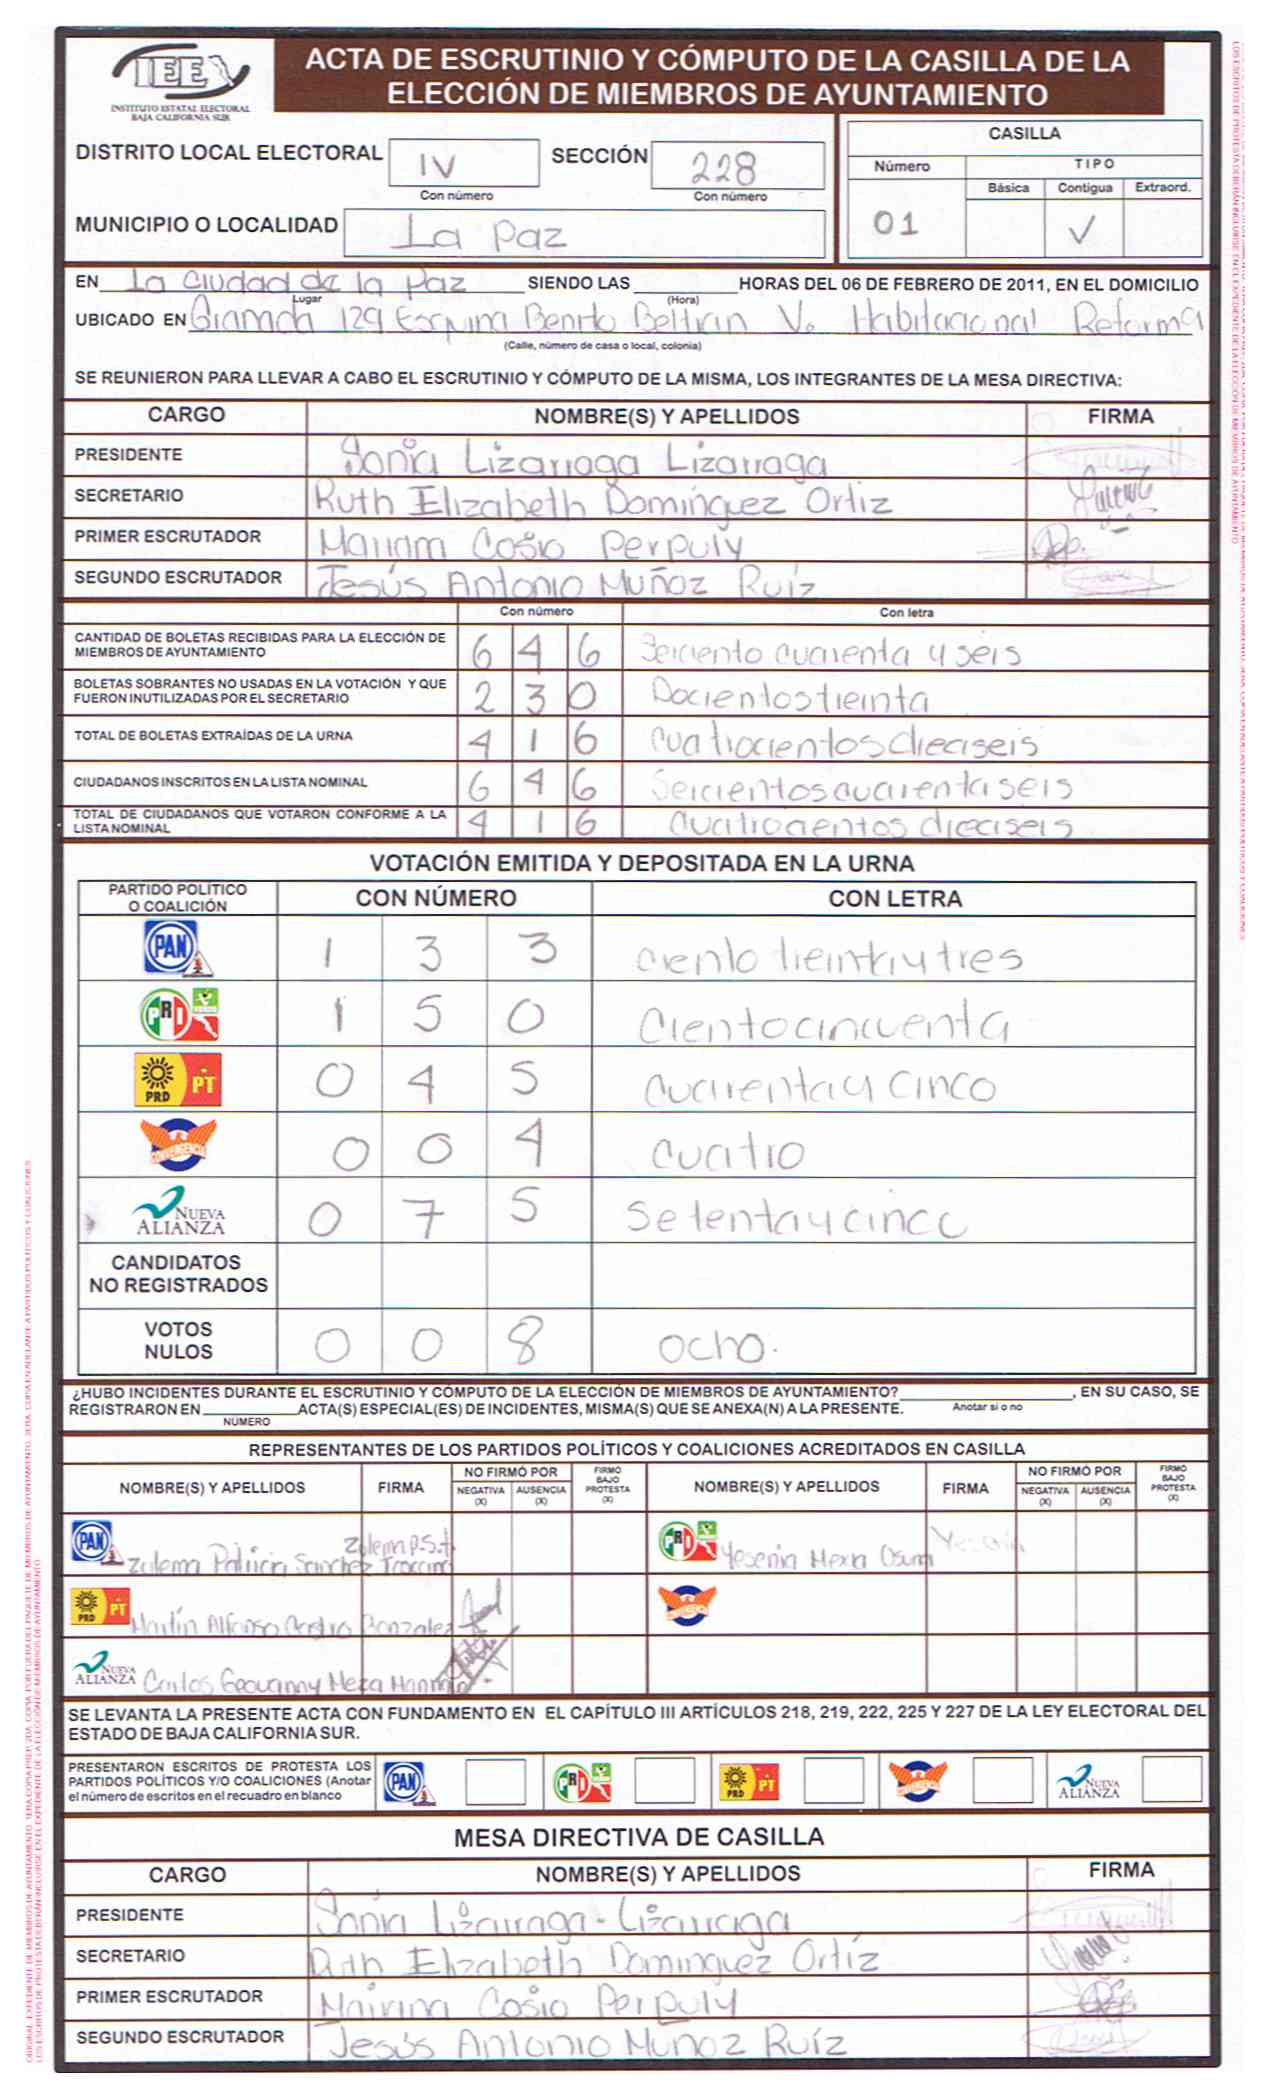 IEE
INSTITUTO ESTATAL ELECTORAL
BAJA CALIFORNIA SUR
ACTA DE ESCRUTINIO Y CÓMPUTO DE LA CASILLA DE LA
ELECCIÓN DE MIEMBROS DE AYUNTAMIENTO
DISTRITO LOCAL ELECTORAL IV SECCIÓN 228
Con número Con número
MUNICIPIO O LOCALIDAD La Paz
CASILLA
Número TIPO
Básica Contigua Extraord.
01 ✓
EN La Ciudad de la Paz SIENDO LAS HORAS DEL 06 DE FEBRERO DE 2011, EN EL DOMICILIO
Lugar (Hora)
UBICADO EN Granada 129 Esquina Benito Beltran V. Habitacional Reforma
(Calle, número de casa o local, colonia)
SE REUNIERON PARA LLEVAR A CABO EL ESCRUTINIO Y CÓMPUTO DE LA MISMA, LOS INTEGRANTES DE LA MESA DIRECTIVA:
CARGO NOMBRE(S) Y APELLIDOS FIRMA
PRESIDENTE Sonia Lizarraga Lizarraga
SECRETARIO Ruth Elizabeth Domínguez Ortiz
PRIMER ESCRUTADOR Mariam Cosio Perpuly
SEGUNDO ESCRUTADOR Jesús Antonio Muñoz Ruíz
Con número Con letra
CANTIDAD DE BOLETAS RECIBIDAS PARA LA ELECCIÓN DE
MIEMBROS DE AYUNTAMIENTO 6 4 6 Seiciento cuarenta y seis
BOLETAS SOBRANTES NO USADAS EN LA VOTACIÓN Y QUE
FUERON INUTILIZADAS POR EL SECRETARIO 2 3 0 Docientos treinta
TOTAL DE BOLETAS EXTRAÍDAS DE LA URNA 4 1 6 cuatrocientos dieciseis
CIUDADANOS INSCRITOS EN LA LISTA NOMINAL 6 4 6 Seicientos cuarenta seis
TOTAL DE CIUDADANOS QUE VOTARON CONFORME A LA
LISTA NOMINAL 4 1 6 Cuatrocientos dieciseis
VOTACIÓN EMITIDA Y DEPOSITADA EN LA URNA
PARTIDO POLÍTICO
O COALICIÓN CON NÚMERO CON LETRA
PAN 1 3 3 ciento treinta y tres
PRI 1 5 0 Ciento cincuenta
PRD PT 0 4 5 cuarenta y cinco
CONVERGENCIA 0 0 4 cuatro
NUEVA ALIANZA 0 7 5 setenta y cinco
CANDIDATOS
NO REGISTRADOS
VOTOS
NULOS 0 0 8 ocho.
¿HUBO INCIDENTES DURANTE EL ESCRUTINIO Y CÓMPUTO DE LA ELECCIÓN DE MIEMBROS DE AYUNTAMIENTO? , EN SU CASO, SE
REGISTRARON EN ACTA(S) ESPECIAL(ES) DE INCIDENTES, MISMA(S) QUE SE ANEXA(N) A LA PRESENTE. Anotar si o no
NÚMERO
REPRESENTANTES DE LOS PARTIDOS POLÍTICOS Y COALICIONES ACREDITADOS EN CASILLA
NOMBRE(S) Y APELLIDOS FIRMA NO FIRMÓ POR NEGATIVA (X) AUSENCIA (X) FIRMÓ BAJO PROTESTA (X) NOMBRE(S) Y APELLIDOS FIRMA NO FIRMÓ POR NEGATIVA (X) AUSENCIA (X) FIRMÓ BAJO PROTESTA (X)
PAN Zulema Patricia Sanchez Zulema P.S.T. PRI Yesenia Mexia Osuna Yesenia
PRD PT Martín Alfonso Castro Gonzalez CONVERGENCIA
NUEVA ALIANZA Carlos Geovanny Meza
SE LEVANTA LA PRESENTE ACTA CON FUNDAMENTO EN EL CAPÍTULO III ARTÍCULOS 218, 219, 222, 225 Y 227 DE LA LEY ELECTORAL DEL
ESTADO DE BAJA CALIFORNIA SUR.
PRESENTARON ESCRITOS DE PROTESTA LOS
PARTIDOS POLÍTICOS Y/O COALICIONES (Anotar
el número de escritos en el recuadro en blanco
PAN PRI PRD PT CONVERGENCIA NUEVA ALIANZA
MESA DIRECTIVA DE CASILLA
CARGO NOMBRE(S) Y APELLIDOS FIRMA
PRESIDENTE Sonia Lizarraga - Lizarraga
SECRETARIO Ruth Elizabeth Dominguez Ortíz
PRIMER ESCRUTADOR Cosio Perpuly
SEGUNDO ESCRUTADOR Jesús Antonio Muñoz Ruíz